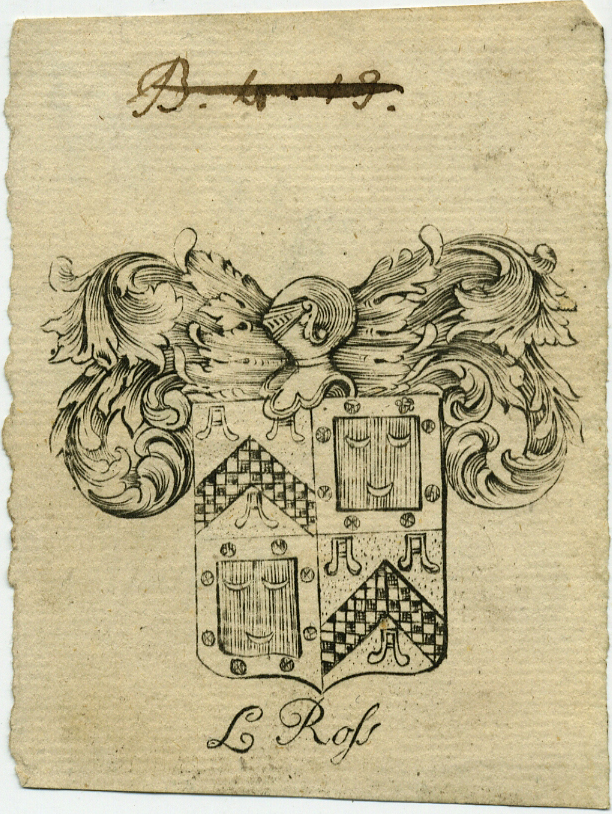 B. 4. 13.
L Roſs